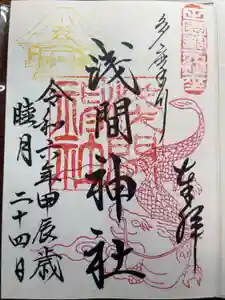 多摩川
奉拝
浅間神社
令和六年甲辰歳
睦月
二十四日